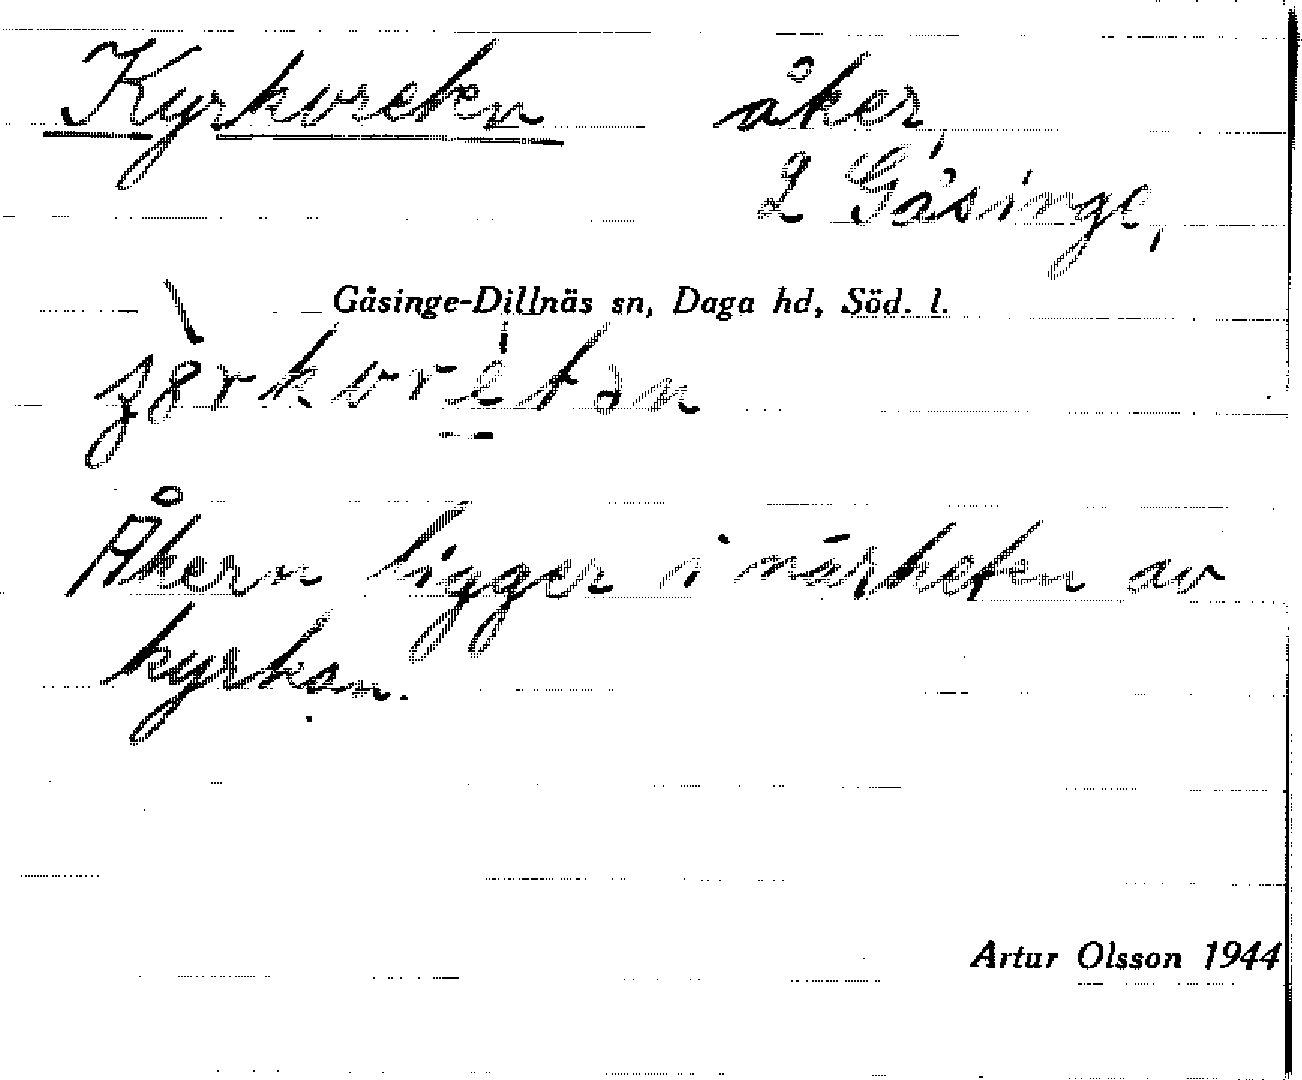 Kyrkoreten åker,
2 Gåsinge,
Gåsinge-Dillnäs sn, Daga hd, Söd. l.
Åkern ligger i närheten av
kyrkan.
Artur Olsson 1944